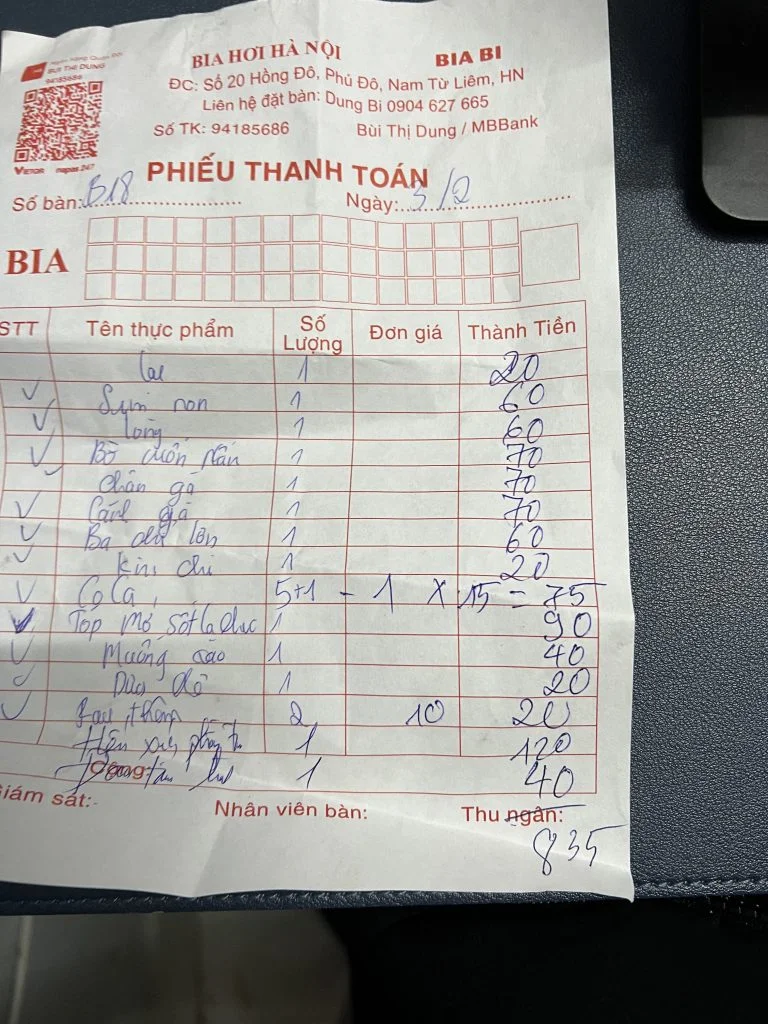 BÙI THỊ DUNG
94185686
VIETQR napas 247
BIA HƠI HÀ NỘI BIA BI
ĐC: Số 20 Hồng Đô, Phú Đô, Nam Từ Liêm, HN
Liên hệ đặt bàn: Dung Bi 0904 627 665
Số TK: 94185686 Bùi Thị Dung / MBBank
PHIẾU THANH TOÁN
Số bàn: B18 Ngày: 3/2
BIA
STT Tên thực phẩm Số Lượng Đơn giá Thành Tiền
1 20
Sụn non 1 60
lòng 1 60
Bò 1 70
Chân gà 1 70
Cánh gà 1 70
Ba chỉ lợn 1 60
Kim chi 1 20
Coca 5+1 - 1 x 15 = 75
Tóp mỡ, sốt 1 90
Muống xào 1 40
Dưa 1 20
2 10 20
1 120
Cộng: 1 40
Giám sát: Nhân viên bàn: Thu ngân:
835